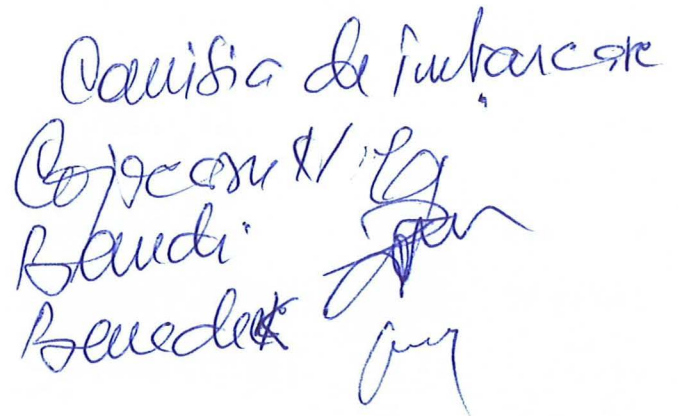 Comisia de îmbarcare
Cojocaru N
Bandi
Benedek